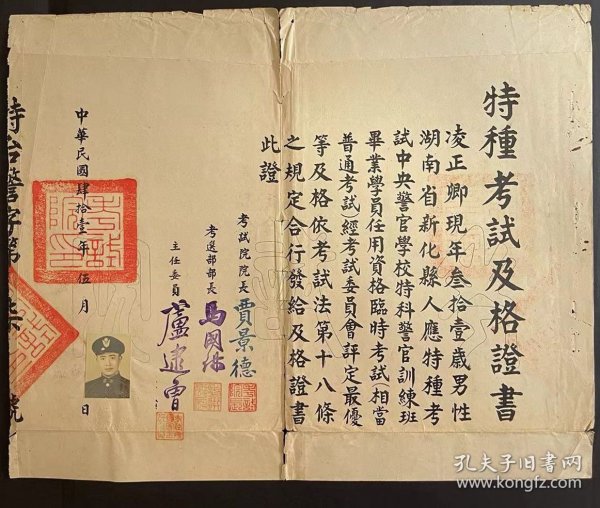 特種考試及格證書
凌正卿現年叁拾壹歲男性
湖南省新化縣人應特種考
試中央警官學校特科警官訓練班
畢業學員任用資格臨時考試(相當
普通考試)經考試委員會評定最優
等及格依考試法第十八條
之規定合行發給及格證書
此證
考試院院長 賈景德
考選部部長 馬國琳
主任委員 盧逮曾
考試院印
中華民國肆拾壹年伍月 日
特台警字第 號
孔夫子旧书网
www.kongfz.com